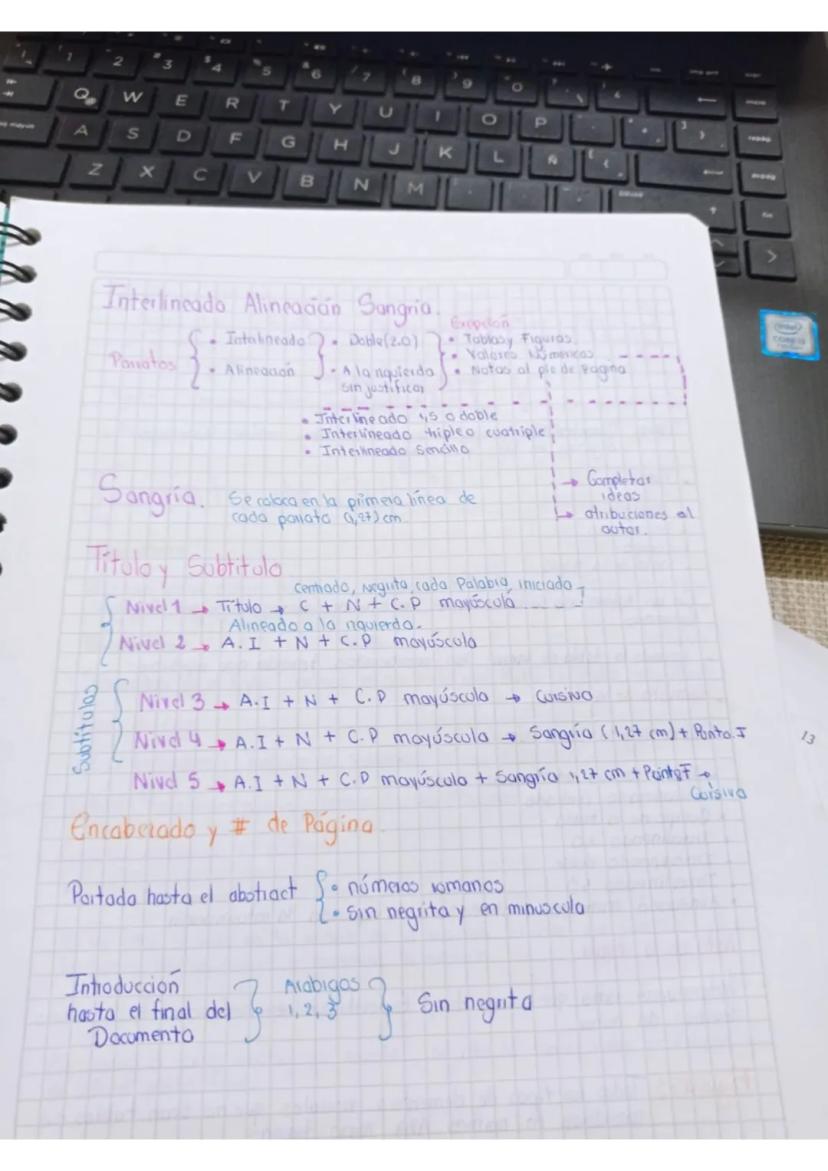 Interlineado Alineación Sangría.
Excepción
Parrafos { • Intalineado } • Doble (2.0) } • Tablas y Figuras.
• Valores Númericos
• Alineación • A la izquierda • Notas al pie de Página
sin justificar
• Interlineado 1,5 o doble
• Interlineado triple o cuatriple
• Interlineado Sencillo
→ Completar
ideas
→ atribuciones al
autor.
Sangría. Se coloca en la primera línea de
cada parrafo (1,27) cm
Título y Subtitulo
Centrado, Negrita, cada Palabra iniciado
Nivel 1 → Título → C + N + C.P mayúscula
Alineado a la izquierda.
Nivel 2 → A.I + N + C.P mayúscula
Subtitulos
Nivel 3 → A.I + N + C.P mayúscula → Cursiva
Nivel 4 → A.I + N + C.P mayúscula → Sangría (1,27 cm) + Punto.F
Nivel 5 → A.I + N + C.P mayúscula + Sangría 1,27 cm + Punto F →
Cursiva
13
Encabezado y # de Página
Portada hasta el abstract { • números romanos
• Sin negrita y en minuscula
Introducción
hasta el final del } Arabigos } Sin negrita
1, 2, 3
Documento